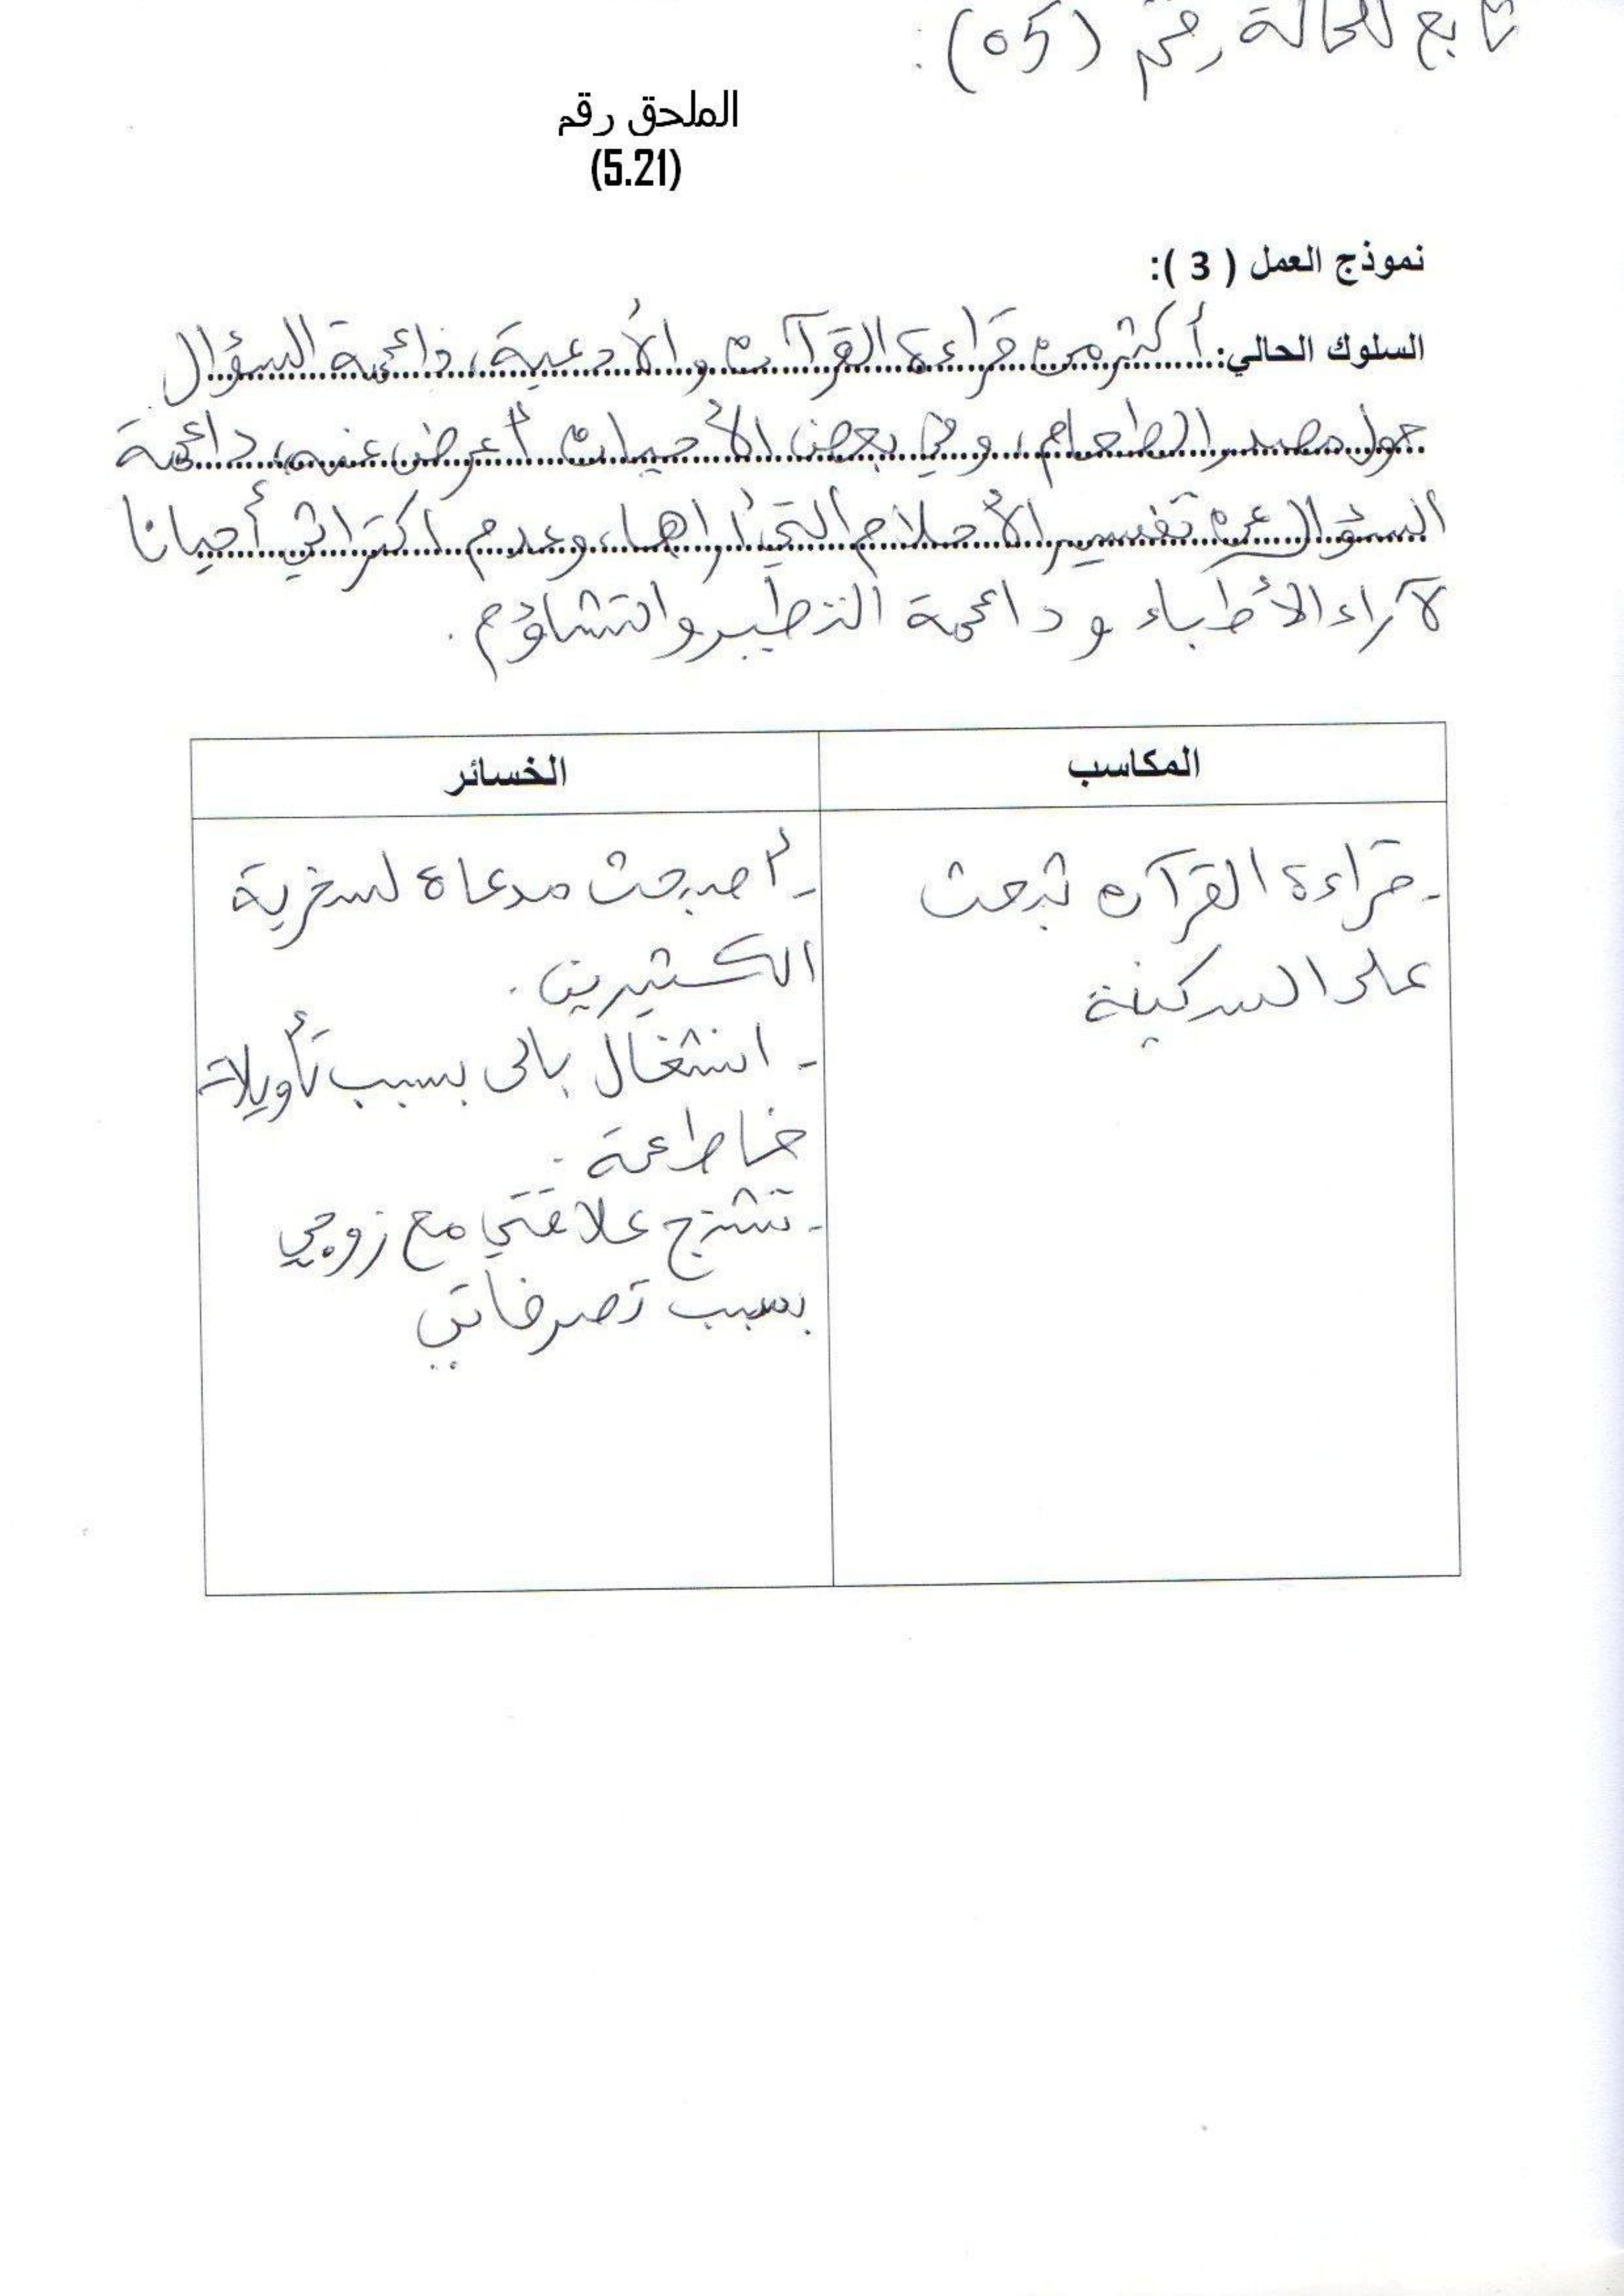 تابع للحالة رقم (05):
الملحق رقم
(5.21)
نموذج العمل ( 3 ):
السلوك الحالي: أكثر من قراءة القرآن والأدعية، دائمة السؤال
حول مصدر الطعام، وفي بعض الأحيان أعرض عنه، دائمة
السؤال عن تفسير الأحلام التي أراها، وعدم اكتراثي أحيانا
لآراء الأطباء ودائمة التطير والتشاؤم.
المكاسب
الخسائر
- قراءة القرآن تبعث
على السكينة
- أصبحت مدعاة لسخرية
الكثيرين.
- انشغال بالى بسبب تأويلات
خاطئة.
- تشنج علاقتي مع زوجي
بسبب تصرفاتي